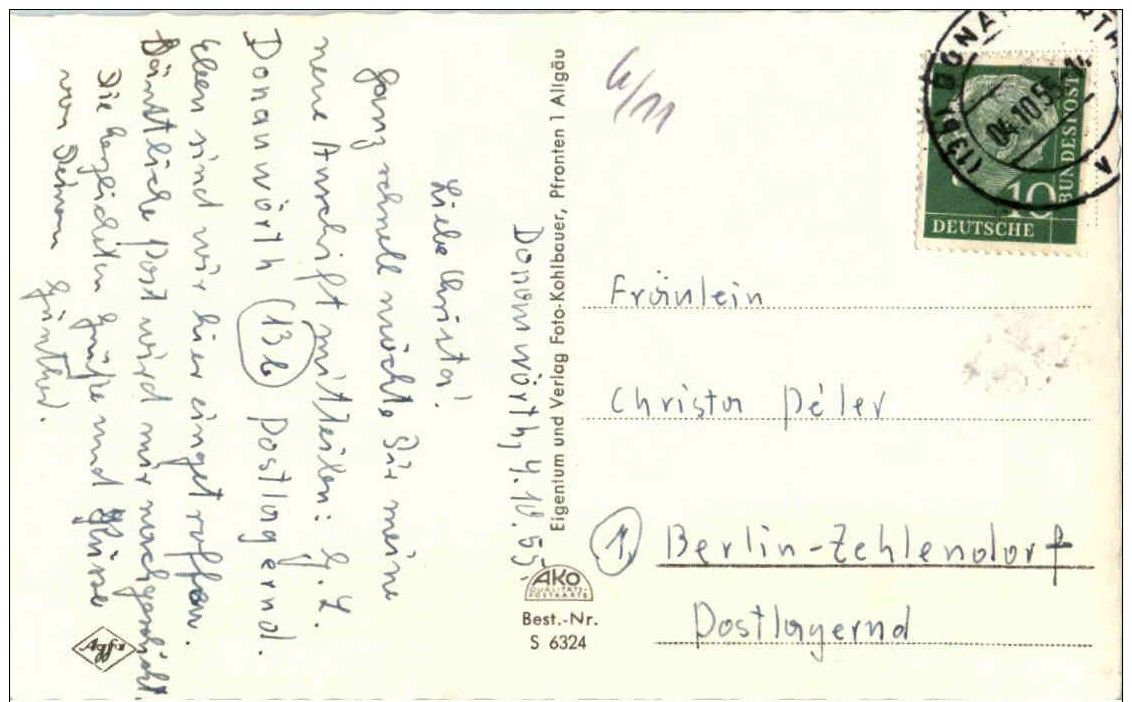 Donauwörth, 4.10.55.
Liebe Christa!
Ganz schnell möchte Dir meine
neue Anschrift mitteilen: z. Z.
Donauwörth (13b) Postlagernd.
Eben sind wir hier eingetroffen.
Sämtliche Post wird mir nachgeschickt.
Die herzlichsten Grüße und Küsse
von Deinem Günther.
Eigentum und Verlag Foto-Kohlbauer, Pfronten 1 Allgäu
AKO
QUALITÄTS-
POSTKARTE
Best.-Nr.
S 6324
4/11
(13b) DONAUWÖRTH
04.10.55
A
10
BUNDESPOST
DEUTSCHE
Fräulein
Christa Péler
(1) Berlin-Zehlendorf
Postlagernd